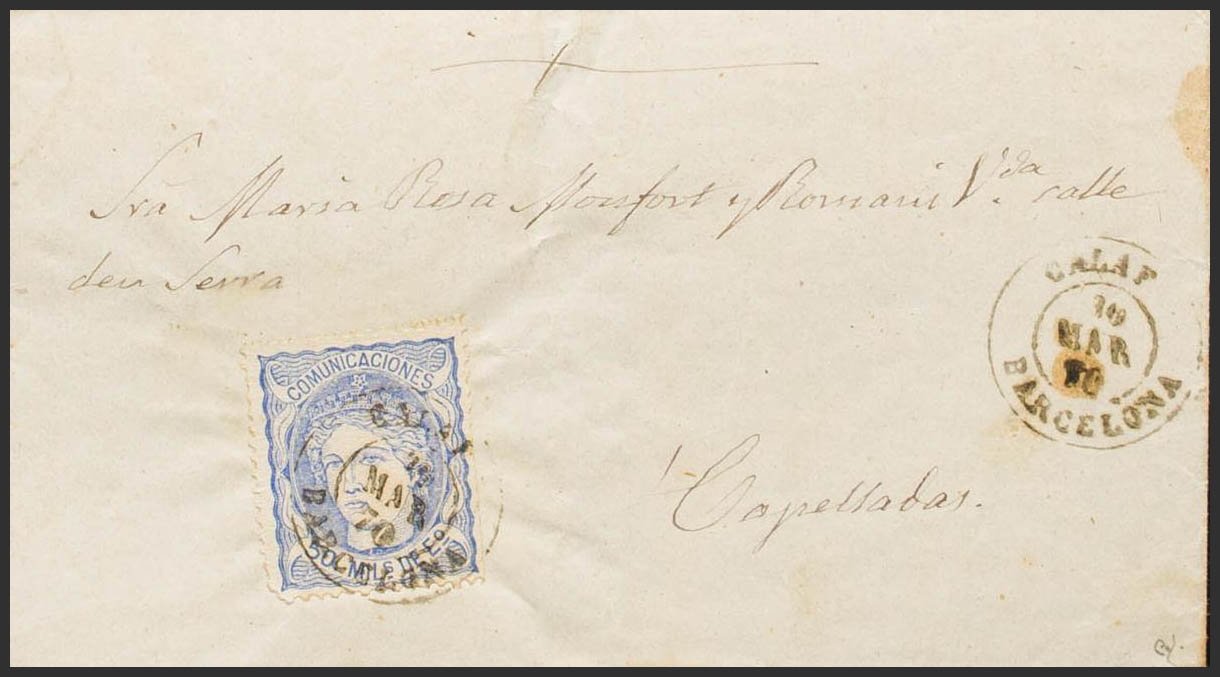 Sra Maria Rosa Monfort y Romani Vda. calle
den Serra
CALAF
10
MAR
70
BARCELONA
COMUNICACIONES
CALAF
MAR
70
BARCELONA
50 MILs DE Eo
Capelladas.